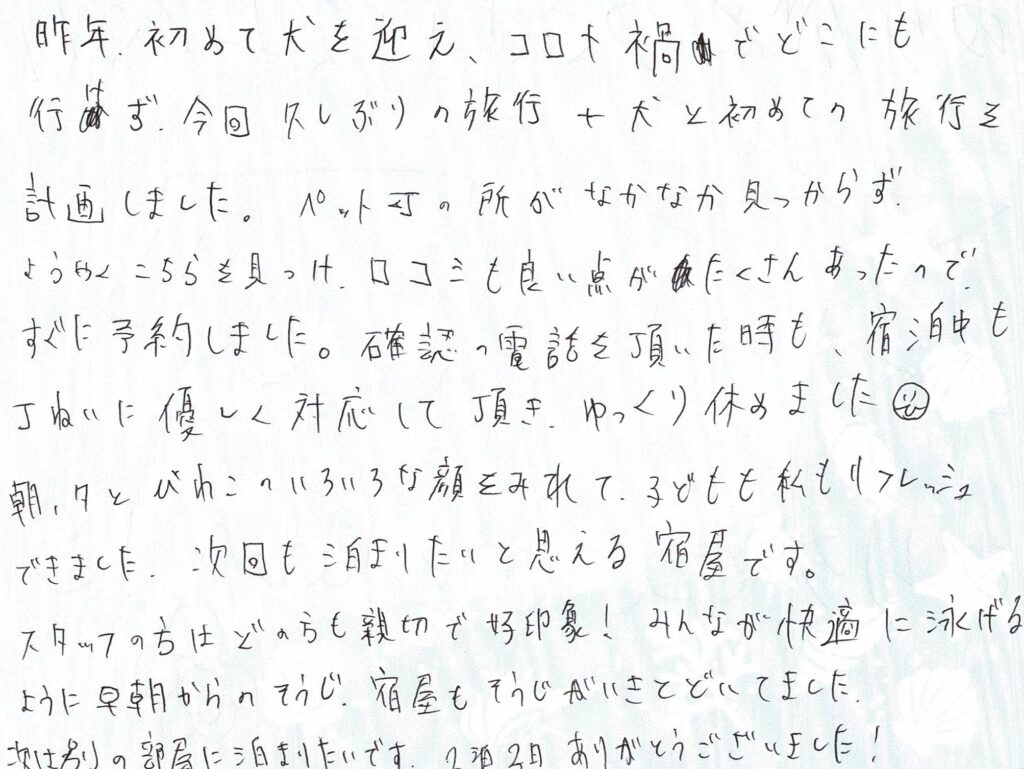 昨年、初めて犬を迎え、コロナ禍でどこにも
行けず、今回久しぶりの旅行+犬と初めての旅行を
計画しました。ペット可の所がなかなか見つからず、
ようやくこちらを見つけ、口コミも良い点がたくさんあったので、
すぐに予約しました。確認の電話を頂いた時も、宿泊中も
丁ねいに優しく対応して頂き、ゆっくり休めました
朝、夕とびわこのいろいろな顔をみれて、子どもも私もリフレッシュ
できました。次回も泊まりたいと思える宿屋です。
スタッフの方はどの方も親切で好印象!みんなが快適に泳げる
ように早朝からのそうじ、宿屋もそうじがいきとどいてました。
次は別の部屋に泊まりたいです。2泊2日ありがとうございました!